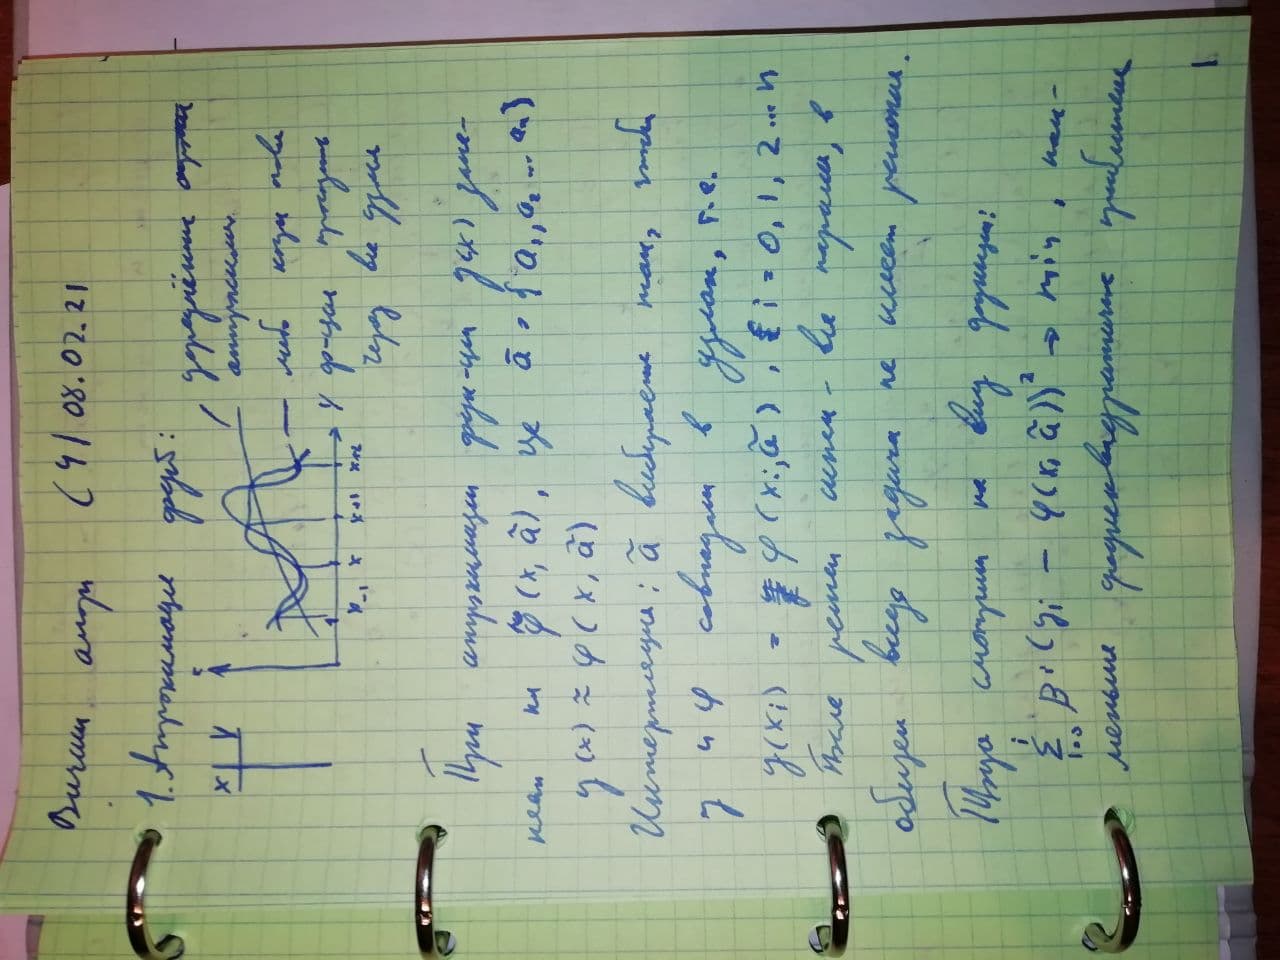 Вычисл. алгор (4) 08.02.21
1. Аппроксимация
x y
усреднённые
аппроксимац.
либо когда нова
x-1 x x+1 x+2 y ф-ция проходить
через все узлы
При аппроксимации функ-ции y(x) заме-
няем на φ̃(x, ã), где ā = {a₁, a₂ ... aₙ}
y(x) ≈ φ(x, ã)
Интерполяция: ã выбирается так, чтобы
y и φ совпадали в узлах, т.е.
y(xi) = φ(xi, ã), i = 0, 1, 2 ... n
После решен систем - все парам, в
общем виде задача не имеет решения.
Тогда смотрим на вид функции:
i
Σ βi (yi - φ(xi, ã))² → min, наи-
i=0
меньше среднеквадратичное приближение
1